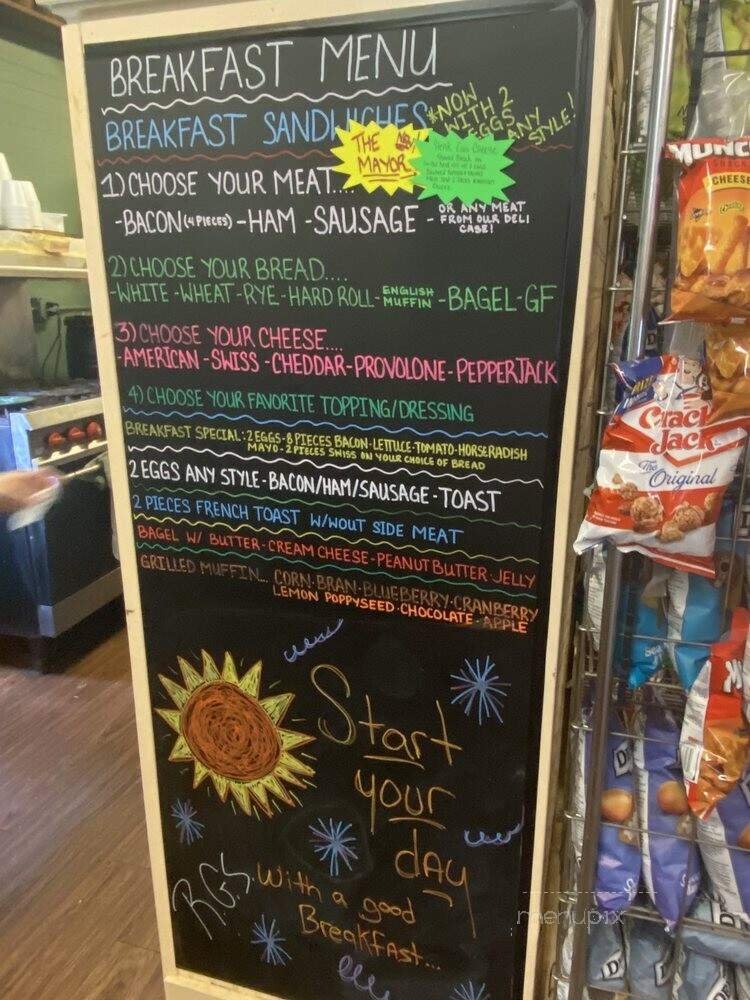 BREAKFAST MENU
BREAKFAST SANDWICHES
*NOW
WITH 2
EGGS ANY
STYLE!
THE NEW!
MAYOR
1) CHOOSE YOUR MEAT....
-BACON (4 PIECES) -HAM -SAUSAGE - OR ANY MEAT
FROM OUR DELI
CASE!
2) CHOOSE YOUR BREAD....
-WHITE -WHEAT -RYE -HARD ROLL- ENGLISH
MUFFIN -BAGEL-GF
3) CHOOSE YOUR CHEESE....
-AMERICAN -SWISS -CHEDDAR-PROVOLONE-PEPPERJACK
4) CHOOSE YOUR FAVORITE TOPPING/DRESSING
BREAKFAST SPECIAL: 2 EGGS-8 PIECES BACON-LETTUCE-TOMATO-HORSERADISH
MAYO-2 PIECES SWISS ON YOUR CHOICE OF BREAD
2 EGGS ANY STYLE-BACON/HAM/SAUSAGE-TOAST
2 PIECES FRENCH TOAST W/WOUT SIDE MEAT
BAGEL W/ BUTTER-CREAM CHEESE-PEANUT BUTTER-JELLY
GRILLED MUFFIN... CORN-BRAN-BLUEBERRY-CRANBERRY
LEMON POPPYSEED-CHOCOLATE-APPLE
Start
your
day
RGS
With a good
Breakfast...
MUNCH
CHEESE
Crack
Jack
The
Original
menupix